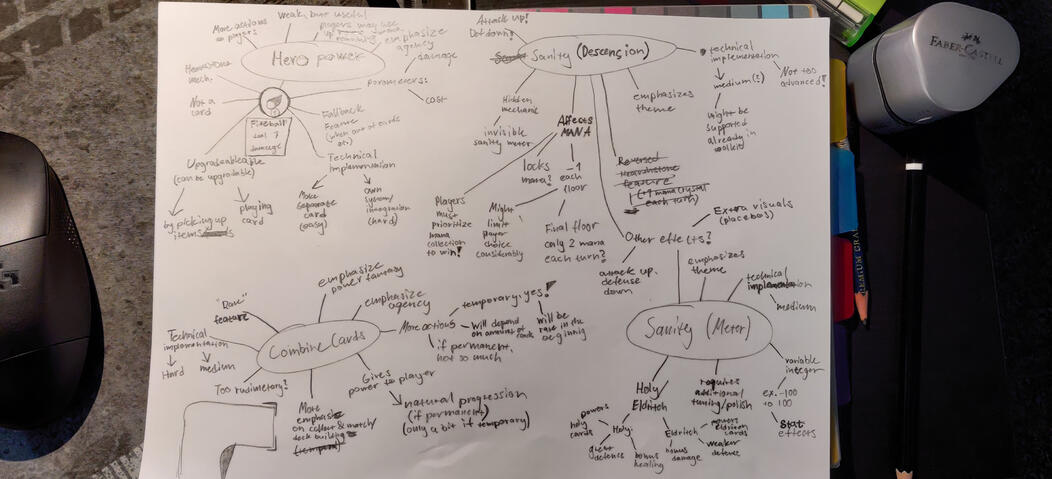 weak, but useful
More actions
to players
players may use
up
emphasize
agency
damage
Hero power
Hearthstone
mech.
Parameters:
cost
Not a
card
Fallback
Feature
(when out of cards
etc)
Fireball
deal 7
damage
Upgradeable
(can be upgradable)
Technical
Implementation
by picking up
items
playing
card
Make
separate
card
(easy)
own
system/
integration
(hard)
Attack up!
Def down!
Sanity (Descension)
technical
implementation
medium(?)
Not too
advanced!
Might be
supported
already in
toolkit
Hidden
mechanic
invisible
sanity meter
Affects
MANA
emphasizes
theme
locks
mana?
-1
each
floor
Reversed
Hearthstone
feature
(+1 mana crystal
each turn)
Players
must
prioritize
mana
collection
to win!
Might
limit
player
choice
considerably
Final floor
only 2 mana
each turn?
Other effects?
Extra visuals
(placebos)
attack up,
defense
down
emphasizes
theme
technical
implementation
medium
Sanity (Meter)
variable
integer
ex. -100
to 100
Stat
effects
Holy
Eldritch
requires
additional
tuning/polish
powers
holy
cards
Holy:
great
defence
bonus
healing
Eldritch
powers
eldritch
cards
bonus
damage
weaker
defense
emphasize
power fantasy
"Rare"
feature
emphasize
agency
Technical
implementation
Hard
medium
Combine Cards
More actions
temporary, yes!
Will depend
on amount of cards
will be
rare in the
beginning
if permanent,
not so much
Too rudimetary?
Gives
power to player
More
emphasis
on collect & match/
deck building
natural progression
(if permanent)
(only a bit if temporary)
FABER-CASTELL